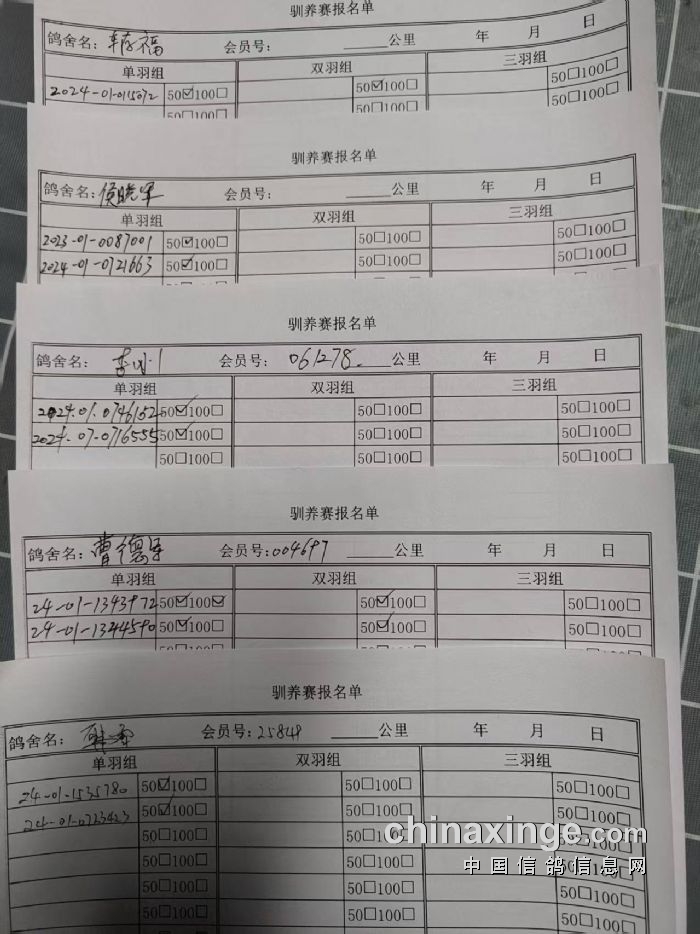 驯养赛报名单
鸽舍名: 福 会员号: ______公里 年 月 日
单羽组 双羽组 三羽组
2024-01-0115072 50☑100☐ 50☑100☐ 50☐100☐
50☐100☐ 50☐100☐ 50☐100☐
驯养赛报名单
鸽舍名: 侯晓军 会员号: ______公里 年 月 日
单羽组 双羽组 三羽组
2023-01-0087001 50☑100☐ 50☐100☐ 50☐100☐
2024-01-0721663 50☑100☐ 50☐100☐ 50☐100☐
驯养赛报名单
鸽舍名: 李 会员号: 061278 ____公里 年 月 日
单羽组 双羽组 三羽组
2024.01.0746152 50☑100☐ 50☐100☐ 50☐100☐
2024.-07-0716555 50☑100☐ 50☐100☐ 50☐100☐
50☐100☐ 50☐100☐ 50☐100☐
驯养赛报名单
鸽舍名: 曹德 会员号:004697 ______公里 年 月 日
单羽组 双羽组 三羽组
24-01-1343972 50☑100☑ 50☑100☐ 50☐100☐
24-01-1344590 50☑100☐ 50☑100☐ 50☐100☐
驯养赛报名单
鸽舍名: 会员号: ______公里 年 月 日
单羽组 双羽组 三羽组
24-01-1535780 50☑100☐ 50☐100☐ 50☐100☐
24-01-0723423 50☑100☐ 50☐100☐ 50☐100☐
50☐100☐ 50☐100☐ 50☐100☐
50☐100☐ 50☐100☐ 50☐100☐
50☐100☐ 50☐100☐ 50☐100☐
50☐100☐ 50☐100☐ 50☐100☐
chinaxinge.com
中国信鸽信息网